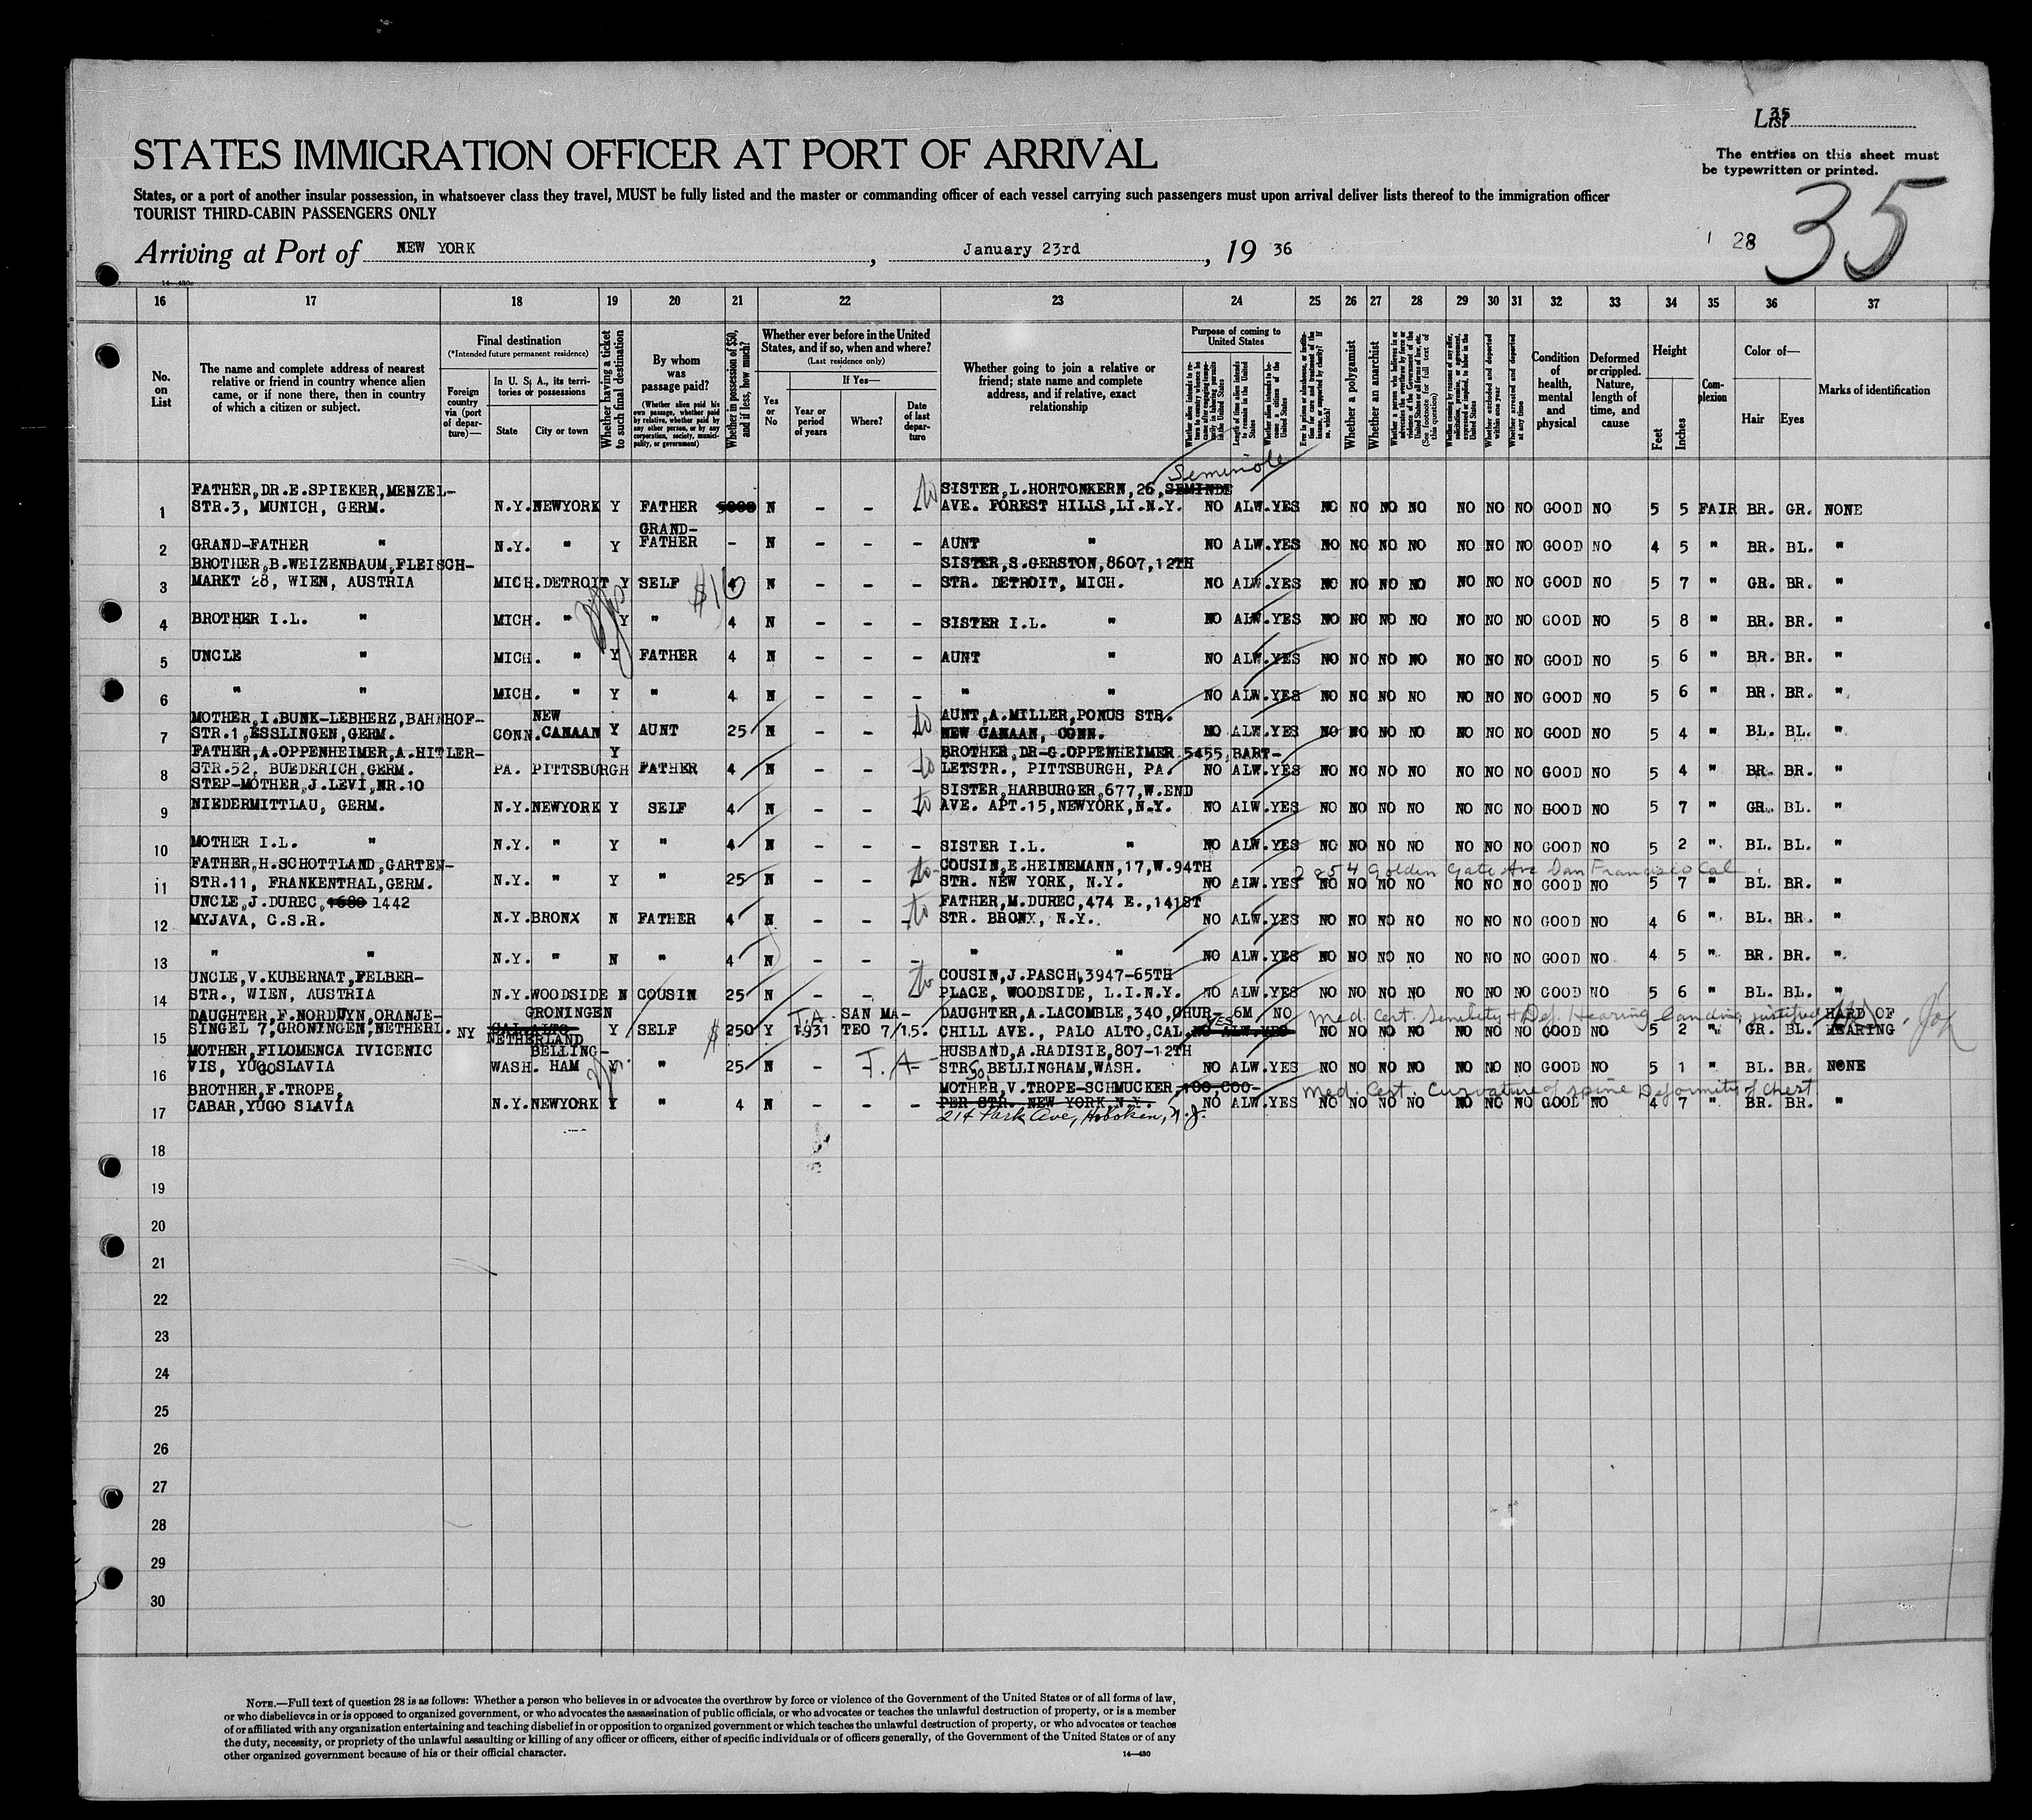 List 35
STATES IMMIGRATION OFFICER AT PORT OF ARRIVAL
The entries on this sheet must
be typewritten or printed.
States, or a port of another insular possession, in whatsoever class they travel, MUST be fully listed and the master or commanding officer of each vessel carrying such passengers must upon arrival deliver lists thereof to the immigration officer
TOURIST THIRD-CABIN PASSENGERS ONLY
35
Arriving at Port of NEW YORK, January 23rd, 19 36
1 28
16 17 18 19 20 21 22 23 24 25 26 27 28 29 30 31 32 33 34 35 36 37
No. on List
The name and complete address of nearest relative or friend in country whence alien came, or if none there, then in country of which a citizen or subject.
Final destination
(*Intended future permanent residence)
Foreign country via (port of departure)—
In U. S. A., its territories or possessions
State
City or town
Whether having a ticket to such final destination
By whom was passage paid?
(Whether alien paid his own passage, whether paid by relative, whether paid by any other person, or by any corporation, society, municipality, or government)
Whether in possession of $50, and if less, how much?
Whether ever before in the United States, and if so, when and where?
(Last residence only)
Yes or No
If Yes—
Year or period of years
Where?
Date of last departure
Whether going to join a relative or friend; state name and complete address, and if relative, exact relationship
Purpose of coming to United States
Whether alien intends to return to country whence he came after engaging temporarily in laboring pursuits in the United States
Length of time alien intends to remain in the United States
Whether alien intends to become a citizen of the United States
Ever in prison or almshouse, or institution for care and treatment of the insane, or supported by charity? If so, which?
Whether a polygamist
Whether an anarchist
Whether a person who believes in or advocates the overthrow by force or violence of the Government of the United States or all forms of law, etc. (See footnote for full text of this question)
Whether coming by reason of any offer, solicitation, promise, or agreement, expressed or implied, to labor in the United States
Whether excluded and deported within one year
Whether arrested and deported at any time
Condition of health, mental and physical
Deformed or crippled. Nature, length of time, and cause
Height
Feet
Inches
Complexion
Color of—
Hair
Eyes
Marks of identification
Seminole
FATHER,DR.E.SPIEKER,MENZEL- to SISTER,L.HORTONKERN,26,SEMINDE
1 STR.3, MUNICH, GERM. N.Y. NEWYORK Y FATHER 5000 N - - - AVE. FOREST HILLS,LI.N.Y. NO ALW.YES NO NO NO NO NO NO NO GOOD NO 5 5 FAIR BR. GR. NONE
GRAND-
2 GRAND-FATHER " N.Y. " Y FATHER - N - - - AUNT " NO ALW.YES NO NO NO NO NO NO NO GOOD NO 4 5 " BR. BL. "
BROTHER,B.WEIZENBAUM,FLEISCH- SISTER,S.GERSTON,8607,12TH
3 MARKT 28, WIEN, AUSTRIA MICH. DETROIT Y SELF $16 4 N - - - STR. DETROIT, MICH. NO ALW.YES NO NO NO NO NO NO NO GOOD NO 5 7 " GR. BR. "
4 BROTHER I.L. " MICH. " Y " 4 N - - - SISTER I.L. " NO ALW.YES NO NO NO NO NO NO NO GOOD NO 5 8 " BR. BR. "
5 UNCLE " MICH. " Y FATHER 4 N - - - AUNT " NO ALW.YES NO NO NO NO NO NO NO GOOD NO 5 6 " BR. BR. "
6 " " MICH. " Y " 4 N - - - " " NO ALW.YES NO NO NO NO NO NO NO GOOD NO 5 6 " BR. BR. "
MOTHER,I.BUNK-LEBHERZ,BAHNHOF- NEW to AUNT,A.MILLER,PONUS STR.
7 STR.1,ESSLINGEN,GERM. CONN. CANAAN Y AUNT 25 N - - NEW CANAAN, CONN. NO ALW.YES NO NO NO NO NO NO NO GOOD NO 5 4 " BL. BL. "
FATHER,A.OPPENHEIMER,A.HITLER- Y BROTHER,DR-G.OPPENHEIMER 5455,BART-
8 STR.52, BUEDERICH,GERM. PA. PITTSBURGH FATHER 4 N - - to LETSTR., PITTSBURGH, PA. NO ALW.YES NO NO NO NO NO NO NO GOOD NO 5 4 " BR. BR. "
STEP-MOTHER,J.LEVI,NR.10 SISTER,HARBURGER,677,W.END
9 NIEDERMITTLAU, GERM. N.Y. NEWYORK Y SELF 4 N - - to AVE. APT.15,NEWYORK,N.Y. NO ALW.YES NO NO NO NO NO NO NO GOOD NO 5 7 " GR. BL. "
10 MOTHER I.L. " N.Y. " Y " 4 N - - - SISTER I.L. " NO ALW.YES NO NO NO NO NO NO NO GOOD NO 5 2 " BL. BL. "
FATHER,H.SCHOTTLAND,GARTEN- to COUSIN,E.HEINEMANN,17,W.94TH 2854 Golden Gate Ave San Francisco Cal
11 STR.11, FRANKENTHAL,GERM. N.Y. " Y " 25 N - - STR. NEW YORK, N.Y. NO ALW.YES NO NO NO NO NO NO NO GOOD NO 5 7 " BL. BR. "
UNCLE,J.DUREC,1680 1442 to FATHER,M.DUREC,474 E.,141ST
12 MYJAVA, C.S.R. N.Y. BRONX N FATHER 4 N - - - STR. BRONX, N.Y. NO ALW.YES NO NO NO NO NO NO NO GOOD NO 4 6 " BL. BR. "
13 " " N.Y. " N " 4 N - - - " " NO ALW.YES NO NO NO NO NO NO NO GOOD NO 4 5 " BR. BR. "
UNCLE,V.KUBERNAT,FELBER- to COUSIN,J.PASCH,3947-65TH
14 STR., WIEN, AUSTRIA N.Y. WOODSIDE N COUSIN 25 N - - PLACE, WOODSIDE, L.I.N.Y. NO ALW.YES NO NO NO NO NO NO NO GOOD NO 5 6 " BL. BL. "
DAUGHTER,F.NORDUYN,ORANJE- GRONINGEN T.A. SAN MA- DAUGHTER,A.LACOMBLE,340,CHUR- 6M NO Med. Cert. Senility + Def. Hearing landing justified HARD OF
15 SINGEL 7,GRONINGEN,NETHERL. NY CAL.ALTO NETHERLAND Y SELF $ 250 Y 1931 TEO 7/15. CHILL AVE., PALO ALTO,CAL. YES NO ALW.YES NO NO NO NO NO NO NO GOOD NO 5 2 " GR. BL. HEARING
MOTHER,FILOMENCA IVICENIC BELLING- HUSBAND,A.RADISIE,807-12TH
16 VIS, YUGOSLAVIA WASH. HAM Y " 25 N T.A- STR. So. BELLINGHAM,WASH. NO ALW.YES NO NO NO NO NO NO NO GOOD NO 5 1 " BL. BR. NONE
BROTHER,F.TROPE, MOTHER,V.TROPE-SCHMUCKER,100,COO- Med. Cert. Curvature of spine Deformity of chest
17 CABAR,YUGO SLAVIA N.Y. NEWYORK Y " 4 N - - - PER STR. NEW YORK N.Y. NO ALW.YES NO NO NO NO NO NO NO GOOD NO 4 7 " BR. BR. "
214 Park Ave, Hoboken, N.J.
18
19
20
21
22
23
24
25
26
27
28
29
30
NOTE.—Full text of question 28 is as follows: Whether a person who believes in or advocates the overthrow by force or violence of the Government of the United States or of all forms of law,
or who disbelieves in or is opposed to organized government, or who advocates the assassination of public officials, or who advocates or teaches the unlawful destruction of property, or is a member
of or affiliated with any organization entertaining and teaching disbelief in or opposition to organized government or which teaches the unlawful destruction of property, or who advocates or teaches
the duty, necessity, or propriety of the unlawful assaulting or killing of any officer or officers, either of specific individuals or of officers generally, of the Government of the United States or of any
other organized government because of his or their official character.
14—430